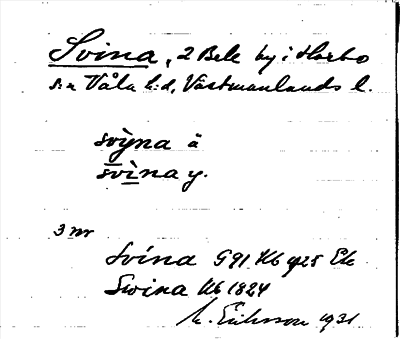 Svina, 2 Bek by i Harbo
s:n Våla h:d, Västmanlands l.
svỳna ä
svìna y.
3 nr
Svina G91 Kb 1925 Ek
Swina Kb 1824
M. Eriksson 1931